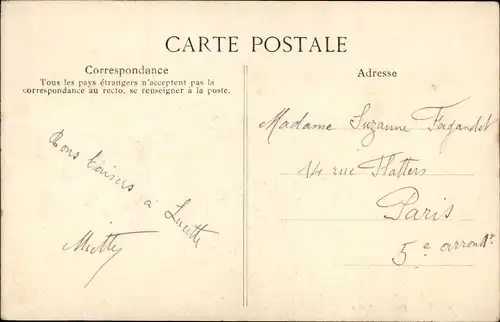 CARTE POSTALE
Correspondance
Tous les pays étrangers n'acceptent pas la
correspondance au recto, se renseigner à la poste.
Adresse
Bons baisers à Lucette
Mietty
Madame Suzanne Fagandet
14 rue Flatters
Paris
5e arrondt